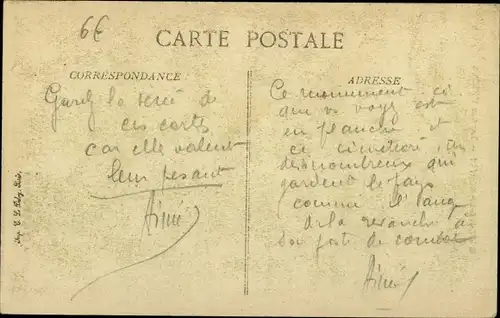 6€
CARTE POSTALE
CORRESPONDANCE
Gardez la série de
ces cartes
car elle valent
leur pesant
Aimé
ADRESSE
Ce monument ci
que vs voyez est
en planche et
ce cimetière, un
des nombreux qui
gardent le pays
comme l'ange
de la revanche a
son fort de combat
Aimé
Imp. E. Le Deley, Paris.